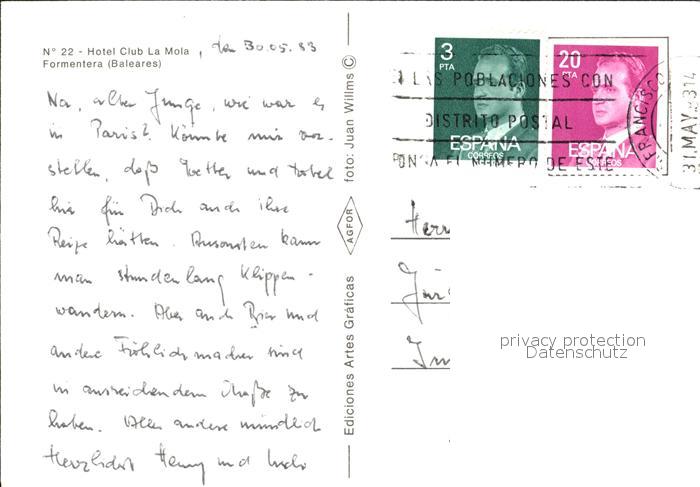 N° 22 - Hotel Club La Mola, den 30.05.83
Formentera (Baleares)
Na, alter Junge, wie war es
in Paris? Könnte mir vor-
stellen, daß Wetter und
hier für Dich auch ihre
Reize hätten. Ansonsten kann
man stundenlang Klippen-
wandern. Aber auch Bier und
andere Fröhlichmacher sind
in ausreichendem Maße zu
haben. Alles andere mündlich
Herzlichst Henny und
Ediciones Artes Gráficas AGFOR foto: Juan Willms ©
3
PTA
ESPAÑA
CORREOS
20
PTA
ESPAÑA
CORREOS
LAS POBLACIONES CON
DISTRITO POSTAL
PONGA EL NUMERO DE ESTE
FRANCISCO
31.MAY.83 14
Herr
Jür
privacy protection
Datenschutz